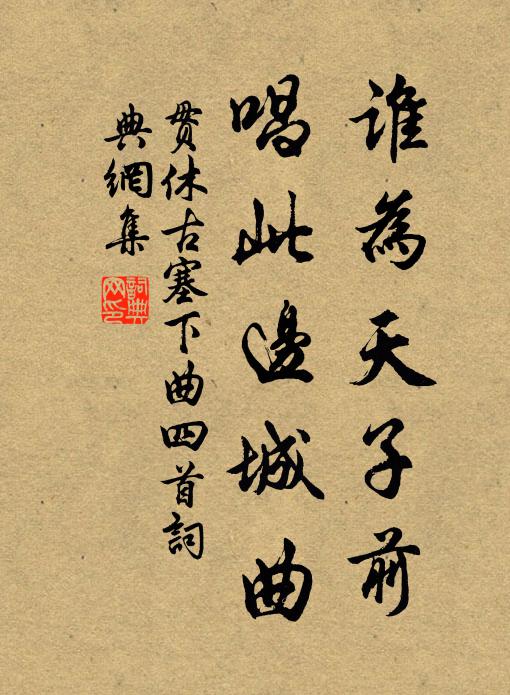 誰為天子前
唱此邊城曲
貫休古塞下曲四首詞
典網集
詞典
网印